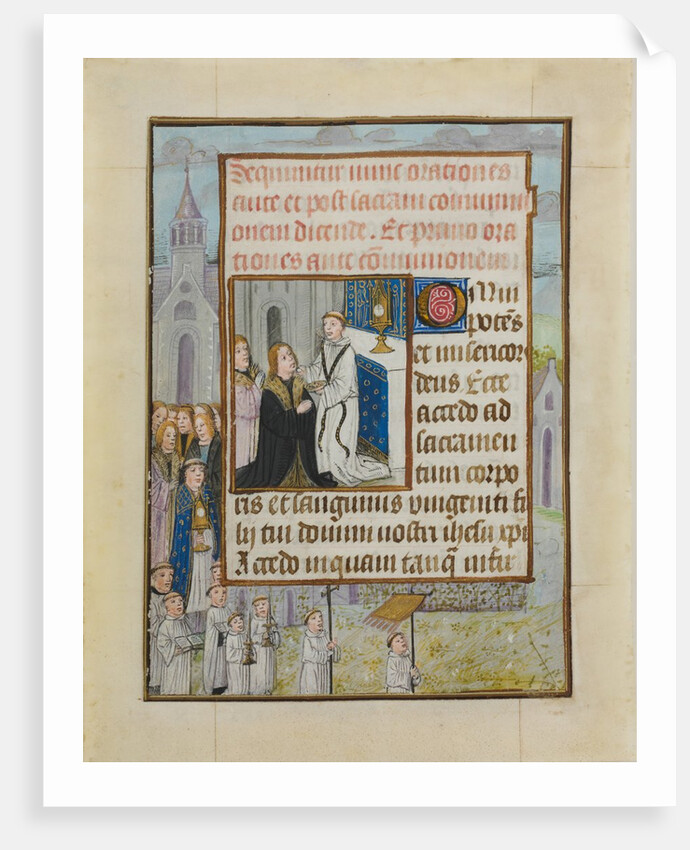 Sequuntur nunc orationes
ante et post sacram communi
onem dicende. Et primo ora
tiones ante cōmunionem
Omni
potēs
et misericor
deus Ecce
accedo ad
sacramen
tum corpo
ris et sanguinis vnigeniti fi
lij tui domini nostri ihesu xpi
Accedo inquam tanq̄ infir